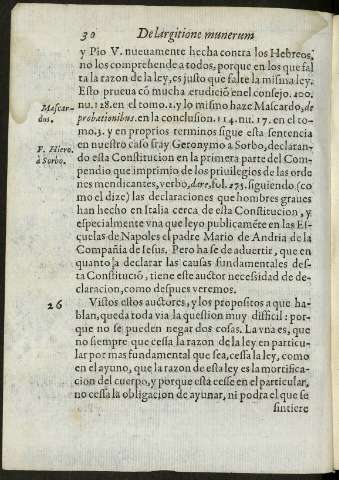 30 De largitione munerum
y Pio V. nueuamente hecha contra los Hebreos,
no los comprehende a todos, porque en los que fal
ta la razon de la ley, es justo que falte la misma ley.
Esto prueua cõ mucha erudiciõ en el consejo. 100.
nu. 128. en el tomo. 2. y lo mismo haze Mascardo, de
Mascar-
dus.
probationibus. en la conclusion. 114. nu. 17. en el to-
mo. 3. y en proprios terminos sigue esta sentencia
en nuestro caso fray Geronymo a Sorbo, declaran-
F. Hiero.
à Sorbo.
do esta Constitucion en la primera parte del Com-
pendio que imprimio de los priuilegios de las orde
nes mendicantes, verbo, dare, fol. 273. siguiendo (co
mo el dize) las declaraciones que hombres graues
han hecho en Italia cerca de esta Constitucion, y
especialmente vna que leyo publicamẽte en las Es-
cuelas de Napoles el padre Mario de Andria de la
Compañia de Iesus. Pero ha se de aduertir, que en
quanto a declarar las causas fundamentales des-
ta Constituciõ, tiene este auctor necessidad de de-
claracion, como despues veremos.
26 Vistos estos auctores, y los propositos a que ha-
blan, queda toda via la question muy difficil: por-
que no se pueden negar dos cosas. La vna es, que
no siempre que cessa la razon de la ley en particu-
lar por mas fundamental que sea, cessa la ley, como
en el ayuno, que la razon de esta ley es la mortifica-
cion del cuerpo, y porque esta cesse en el particular,
no cessa la obligacion de ayunar, ni podra el que se
sintiere